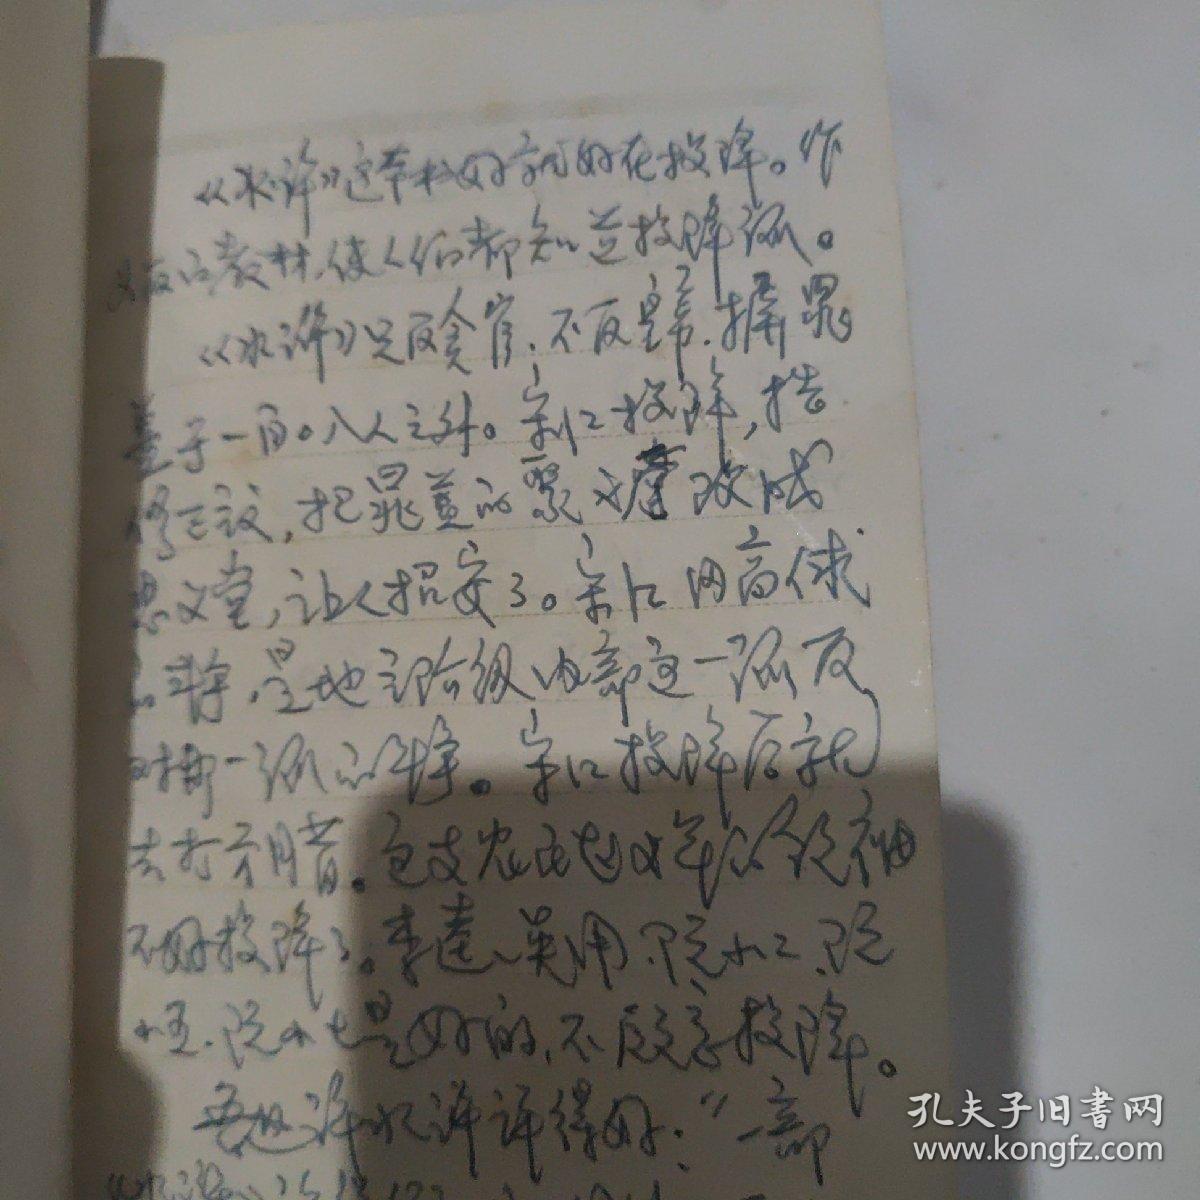 《水浒》这本书好就好在投降。作
反面教材,使人们都知道投降派。
《水浒》只反贪官,不反皇帝.摒晁
盖于一百〇八人之外。宋江投降,搞
修正主义,把晁盖的聚义堂改成
忠义堂,让人招安了。宋江同高俅
的斗争,是地主阶级内部这一派反
对那一派的斗争。宋江投降后就
去打方腊。这支农民起义军的领袖
不好投降了。李逵、吴用、阮小二、阮
小五、阮小七是好的,不愿意投降。
鲁迅评水浒评得好."一部
《水浒》
孔夫子旧书网
www.kongfz.com